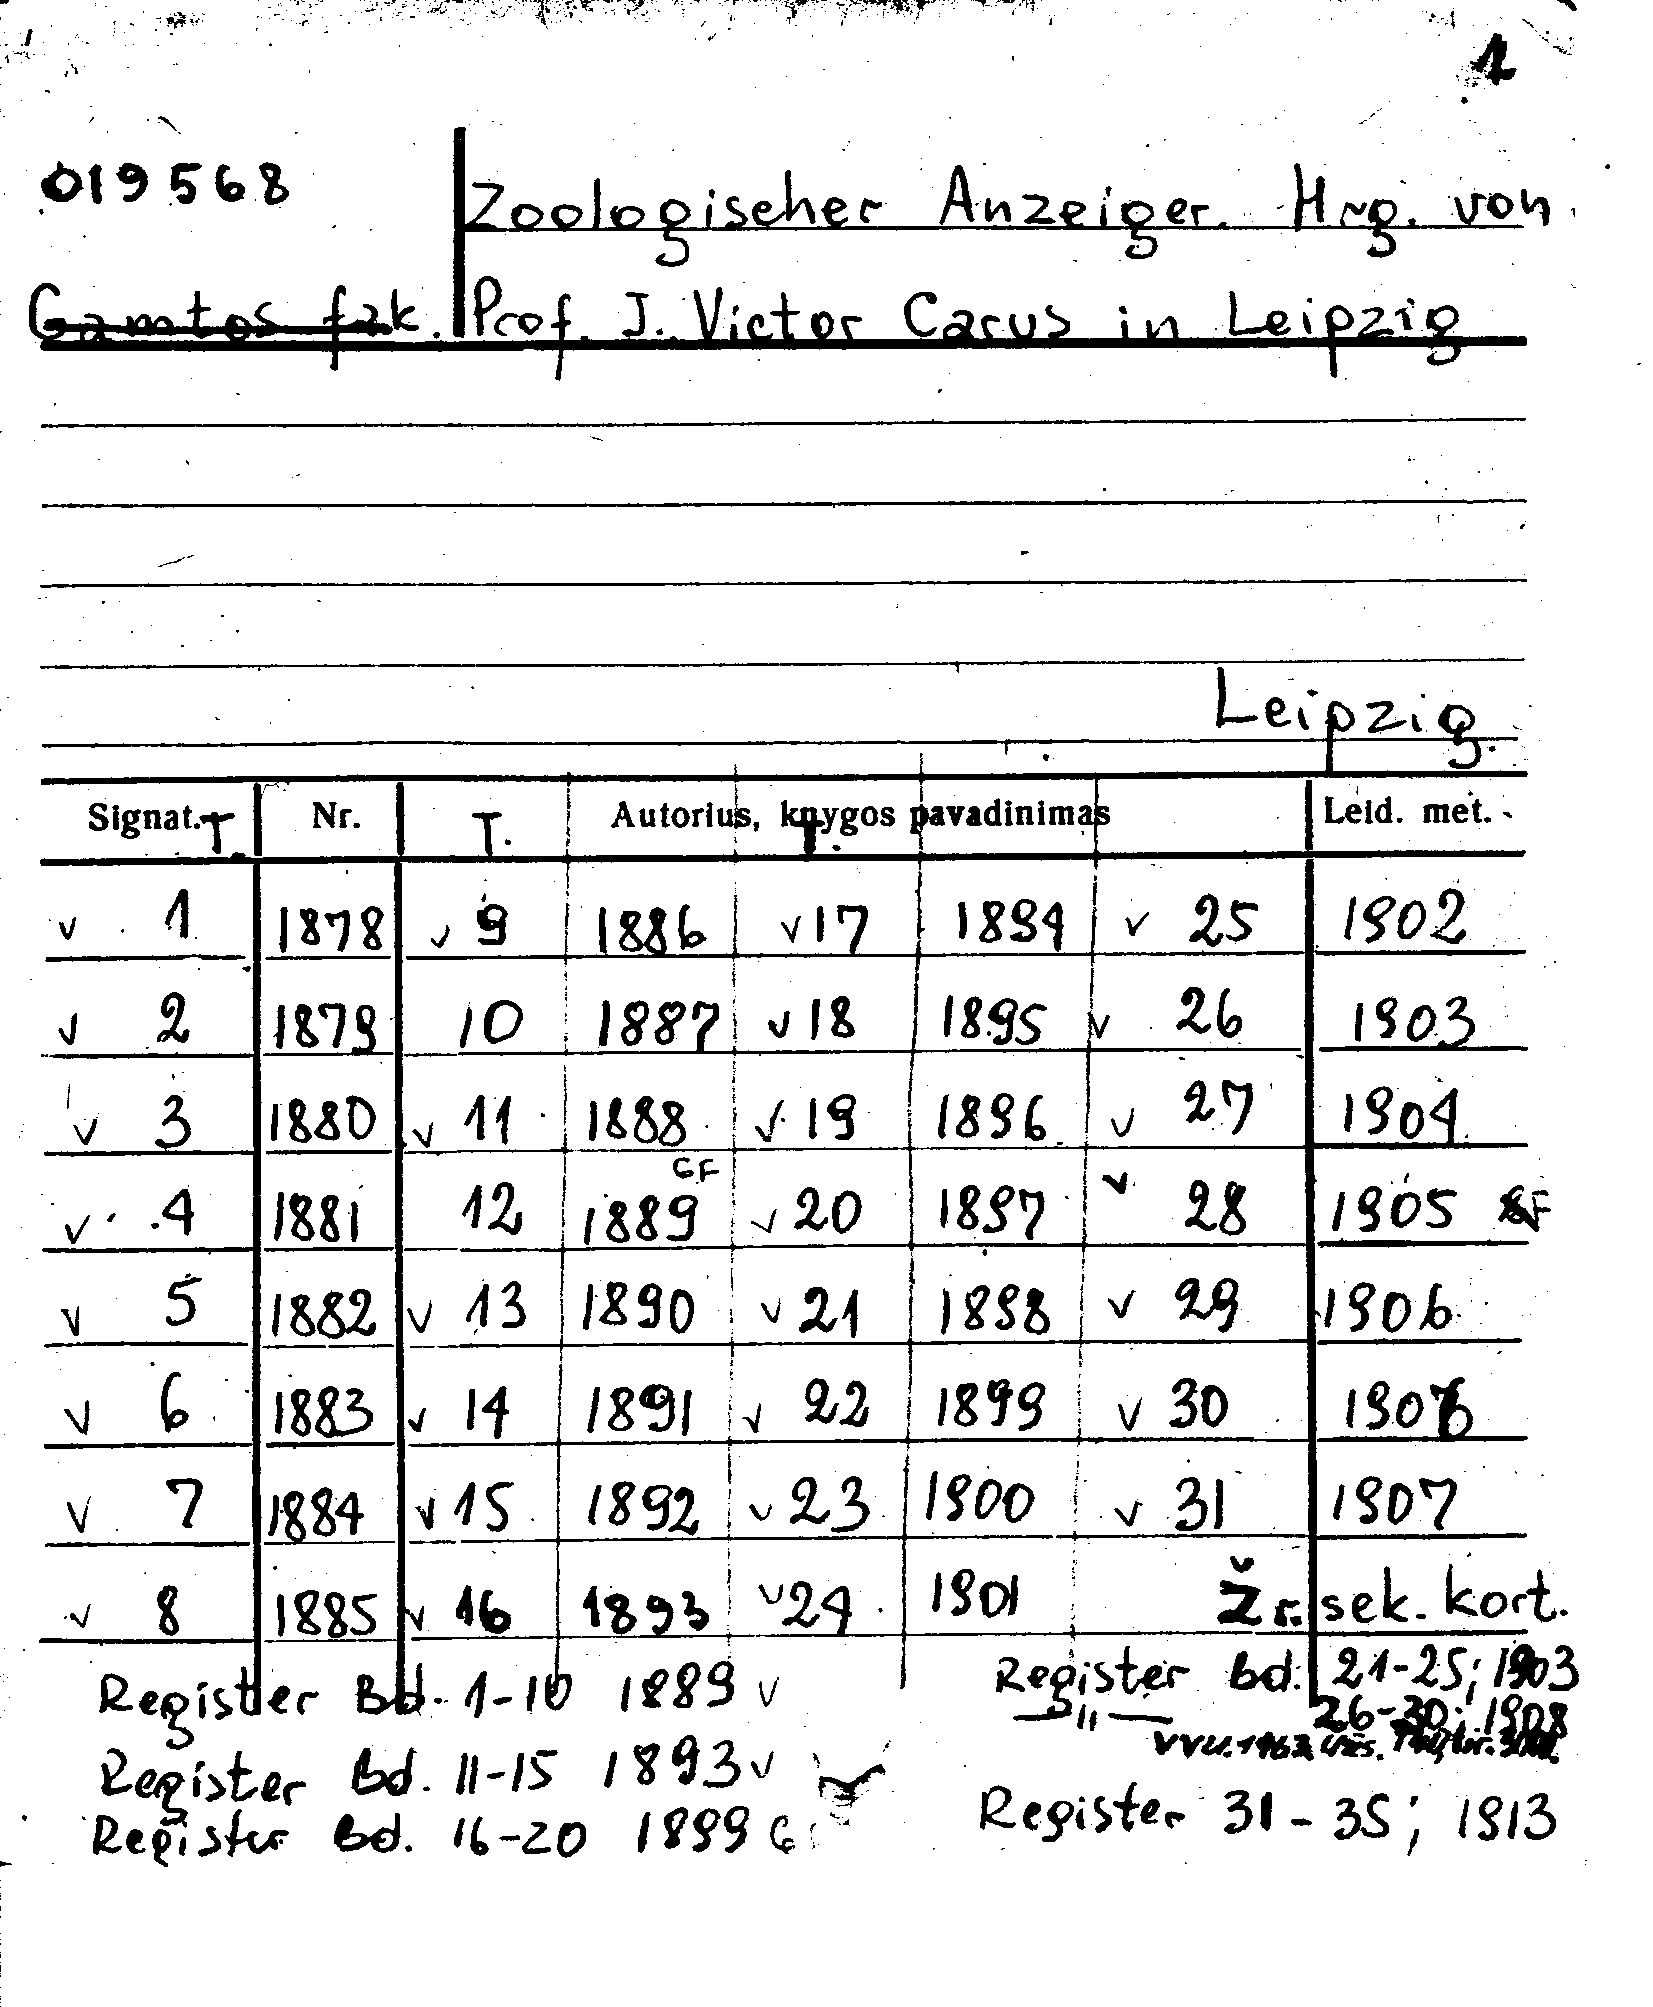 1
019568 Zoologischer Anzeiger. Hrg. von
Gamtos fak. Prof. J. Victor Carus in Leipzig
Leipzig.
Signat. T. Nr. T. Autorius, knygos pavadinimas T. Leid. met.
v 1 1878 v 9 1886 v 17 1894 v 25 1902
v 2 1879 10 1887 v 18 1895 v 26 1903
v 3 1880 v 11 1888 v 19 1896 v 27 1904
v 4 1881 12 1889 GF v 20 1897 v 28 1905 GF
v 5 1882 v 13 1890 v 21 1898 v 29 1906
v 6 1883 v 14 1891 v 22 1899 v 30 1906
v 7 1884 v 15 1892 v 23 1900 v 31 1907
v 8 1885 v 16 1893 v 24 1901 Žr. sek. kort.
Register Bd. 1-10 1889 v
Register Bd. 11-15 1893 v
Register Bd. 16-20 1899 G
Register Bd. 21-25; 1903
—"— 26-30; 1908
VVU.
Register 31-35; 1913